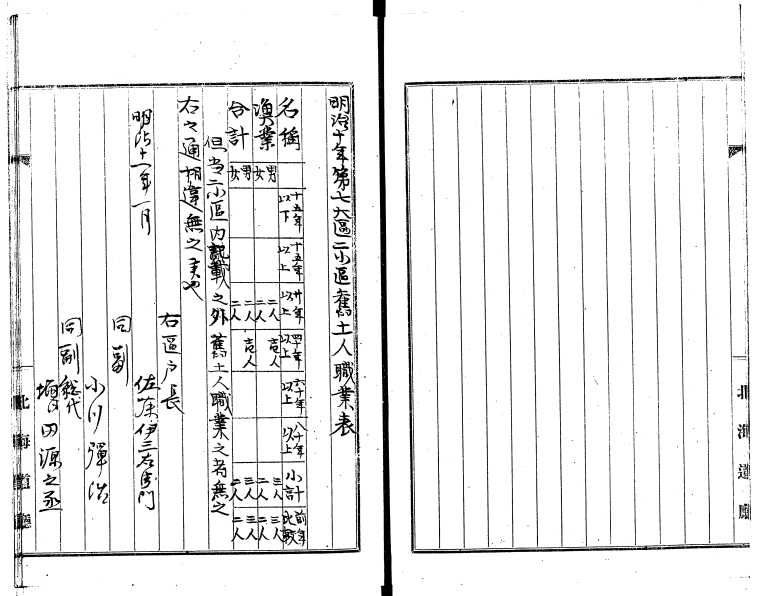 明治十年第七大區二小區舊土人職業表
名稱 十五年以下 十五年以上 廿年以上 四十年以上 六十年以上 八十年以上 小計 前年比較
漁業 男 二人 壱人 三人 三人
女 二人 二人 二人
合計 男 二人 壱人 三人 三人
女 二人 二人 二人
但当二小區内記載之外舊土人職業之者無之
右之通相違無之候也
明治十一年一月
右區戸長
佐藤伊三右衛門
同副
小川彈治
同副総代
増田源之丞
北海道廳
北海道廳